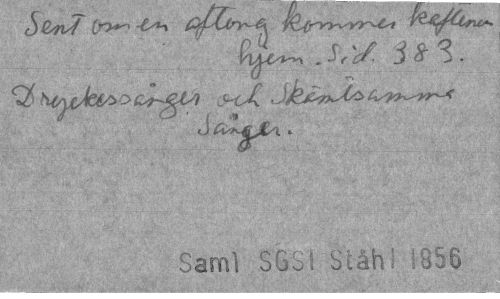 Sent om en aftong kommer kaflena
hjem. Sid. 383.
Dryckessånger och Skämtsamma
Sånger.
Saml SGSl Ståhl 1856